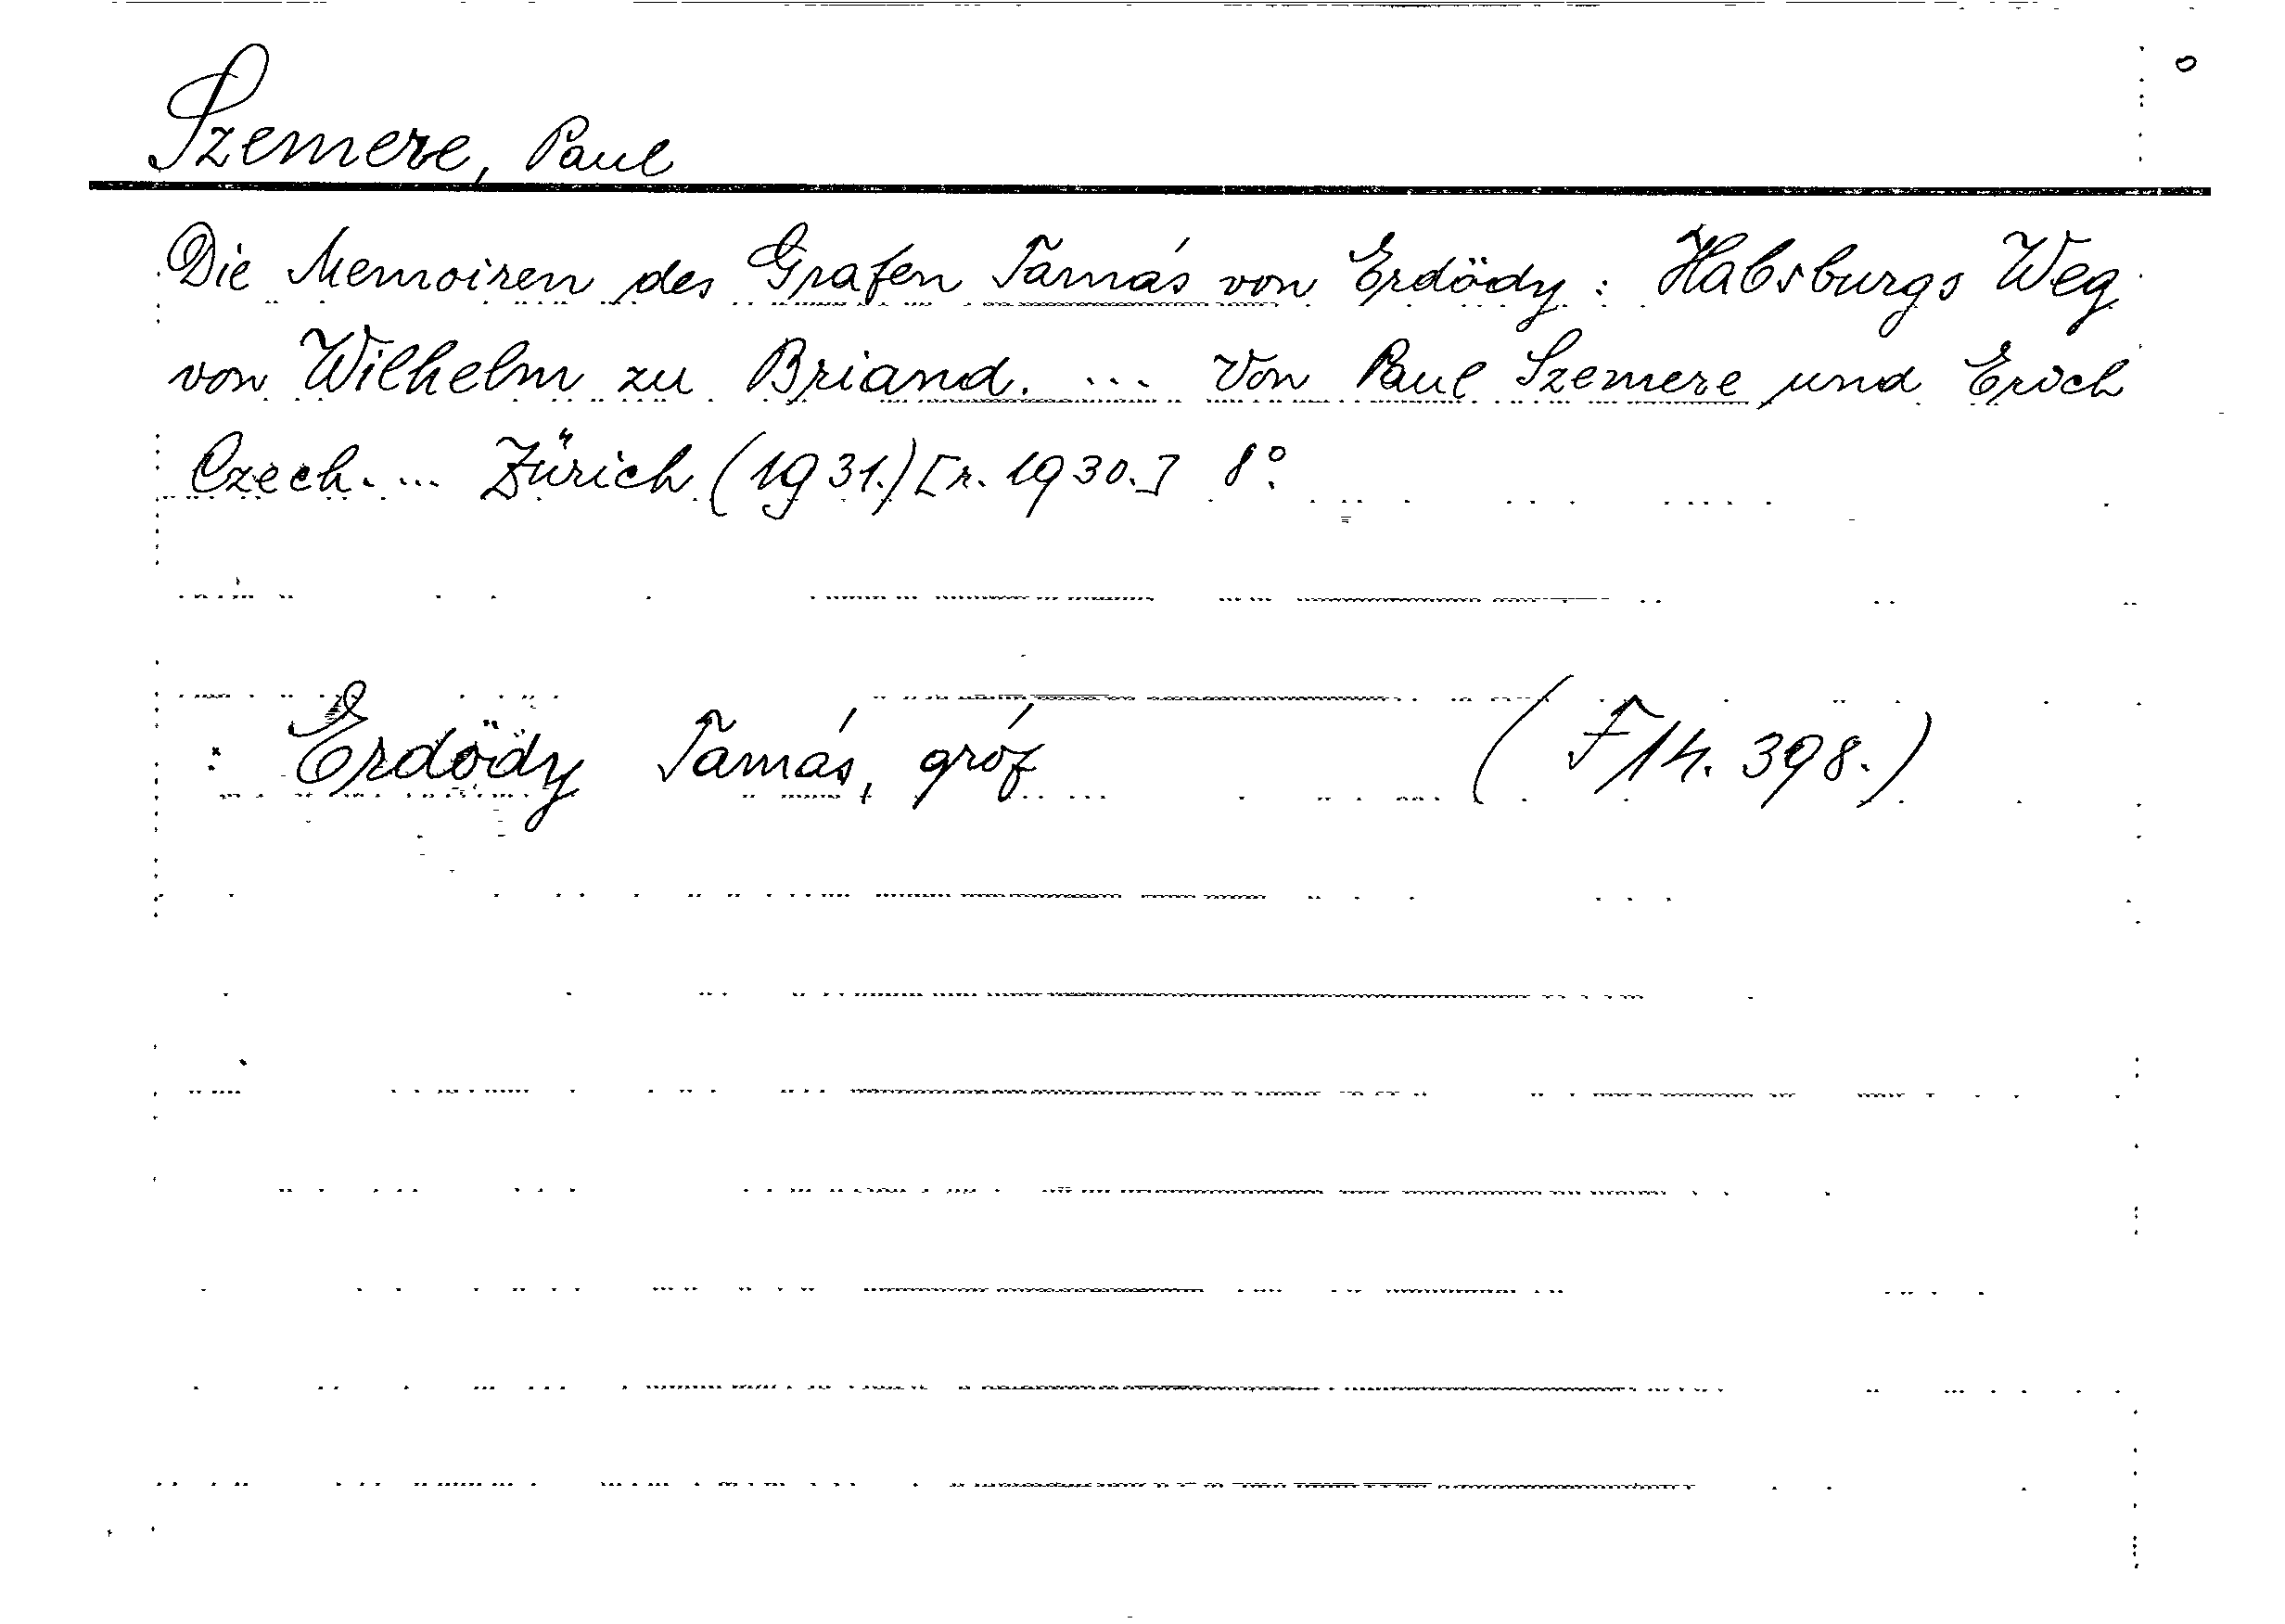 Szemere, Paul
Die Memoiren des Grafen Tamás von Erdödy : Habsburgs Weg
von Wilhelm zu Briand. ... Von Paul Szemere und Erich
Czech. ... Zürich (1931.) [r. 1930.] 8°
: Erdődy Tamás, gróf (F14. 398.)